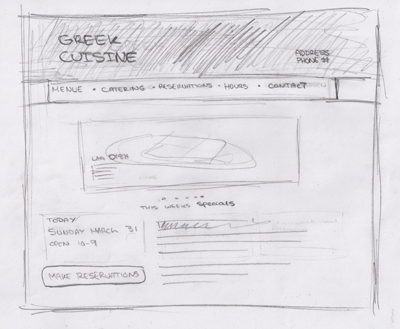 GREEK
CUISINE
ADDRESS
PHONE #
MENUE • CATERING • RESERVATIONS • HOURS • CONTACT
THIS WEEKS SPECIALS
TODAY
SUNDAY MARCH 31
OPEN 10-9
MAKE RESERVATIONS